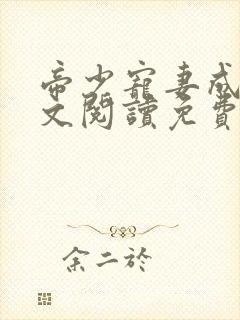 帝少寵妻成
文閱讀免費
余二於